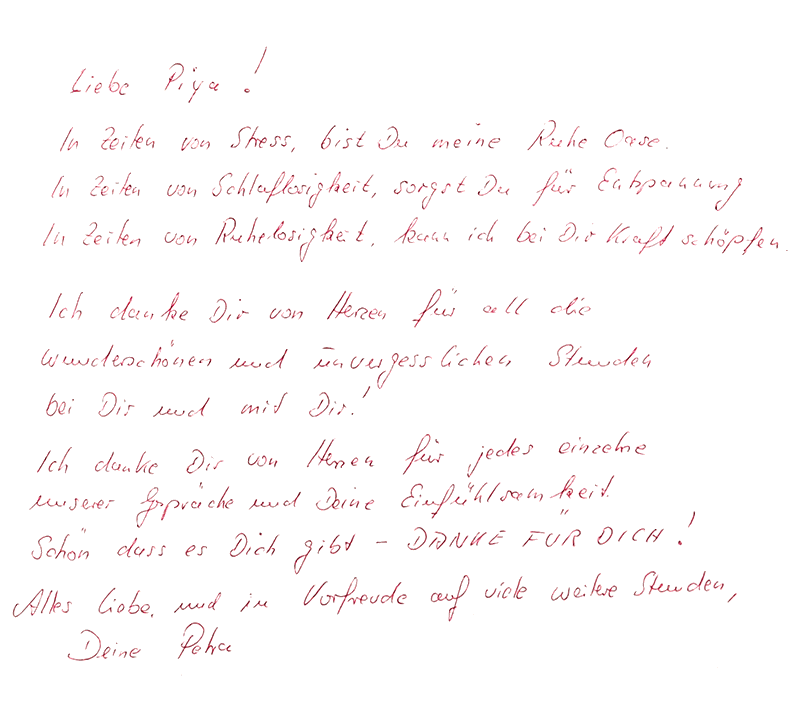 Liebe Piya!
In Zeiten von Stress, bist Du meine Ruhe Oase.
In Zeiten von Schlaflosigkeit, sorgst Du für Entspannung
In Zeiten von Ruhelosigkeit, kann ich bei Dir Kraft schöpfen.
Ich danke Dir von Herzen für all die
wunderschönen und unvergesslichen Stunden
bei Dir und mit Dir!
Ich danke Dir von Herzen für jedes einzelne
unserer Gspräche und Deine Einfühlsamkeit.
Schön dass es Dich gibt - DANKE FÜR DICH!
Alles Liebe, und in Vorfreude auf viele weitere Stunden,
Deine Petra